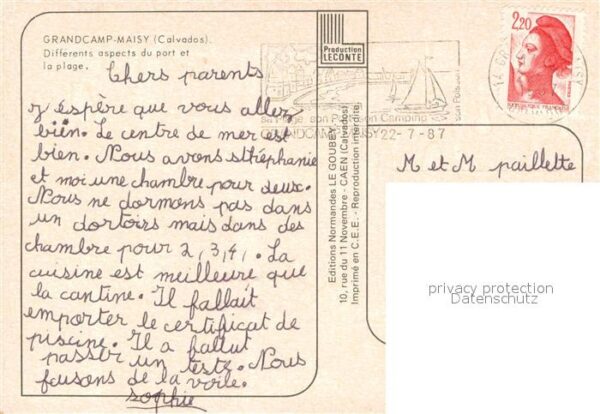 GRANDCAMP-MAISY (Calvados).
Différents aspects du port et
la plage.
Chers parents
J'éspère que vous allez
bien. Le centre de mer est
bien. Nous avons sthéphanie
et moi une chambre pour deux.
Nous ne dormons pas dans
un dortoirs mais dans des
chambre pour 2, 3, 4,. La
cuisine est meilleure que
la cantine. Il fallait
emporter le certificat de
piscine. Il a fallut
passer un teste. Nous
fesons de la voile.
sophie
Production
LECONTE
Editions Normandes LE GOUBEY
10, rue du 11 Novembre - CAEN (Calvados)
Imprimé en C.E.E. - Reproduction interdite
Sa Plage son Port son Camping
GRANDCAMP MAISY 22-7-87
son Poisson
2,20
REPUBLIQUE FRANÇAISE
M et M paillette
privacy protection
Datenschutz